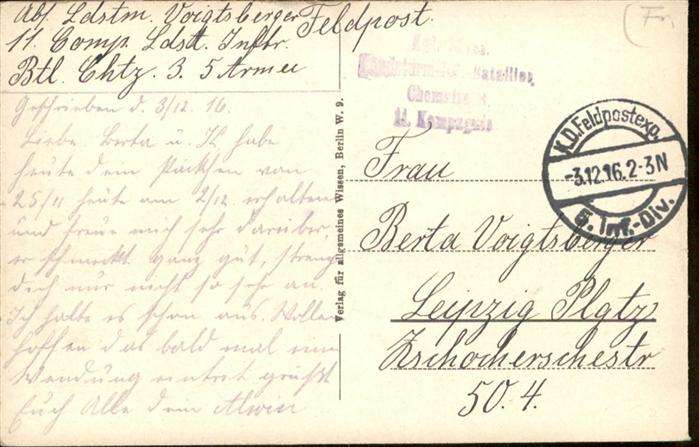 Abs. Ldstm. Voigtsberger Feldpost.
11. Comp. Ldst. Inftr.
Btl. Chtz. 3. 5 Armee
Geschrieben d. 3/12. 16.
Liebe Berta u. K habe
heute dein Päckchen vom
25/11 heute am 2/12. erhalten
und freue mich sehr darüber
er schmeckt ganz gut, streng
dich nur nicht so sehr an.
Ich halte es schon aus. Wollen
hoffen das bald mal eine
Wendung eintret grüßt
Euch Alle dein Alwin
Verlag für allgemeines Wissen, Berlin W. 9.
Bataillon
11. Kompagnie
K.D.Feldpostexp.
-3.12.16.2-3N
5. Inf.-Div.
Frau
Berta Voigtsberger
Leipzig Plgtz.
Zschocherschestr
50. 4.
(Fr.